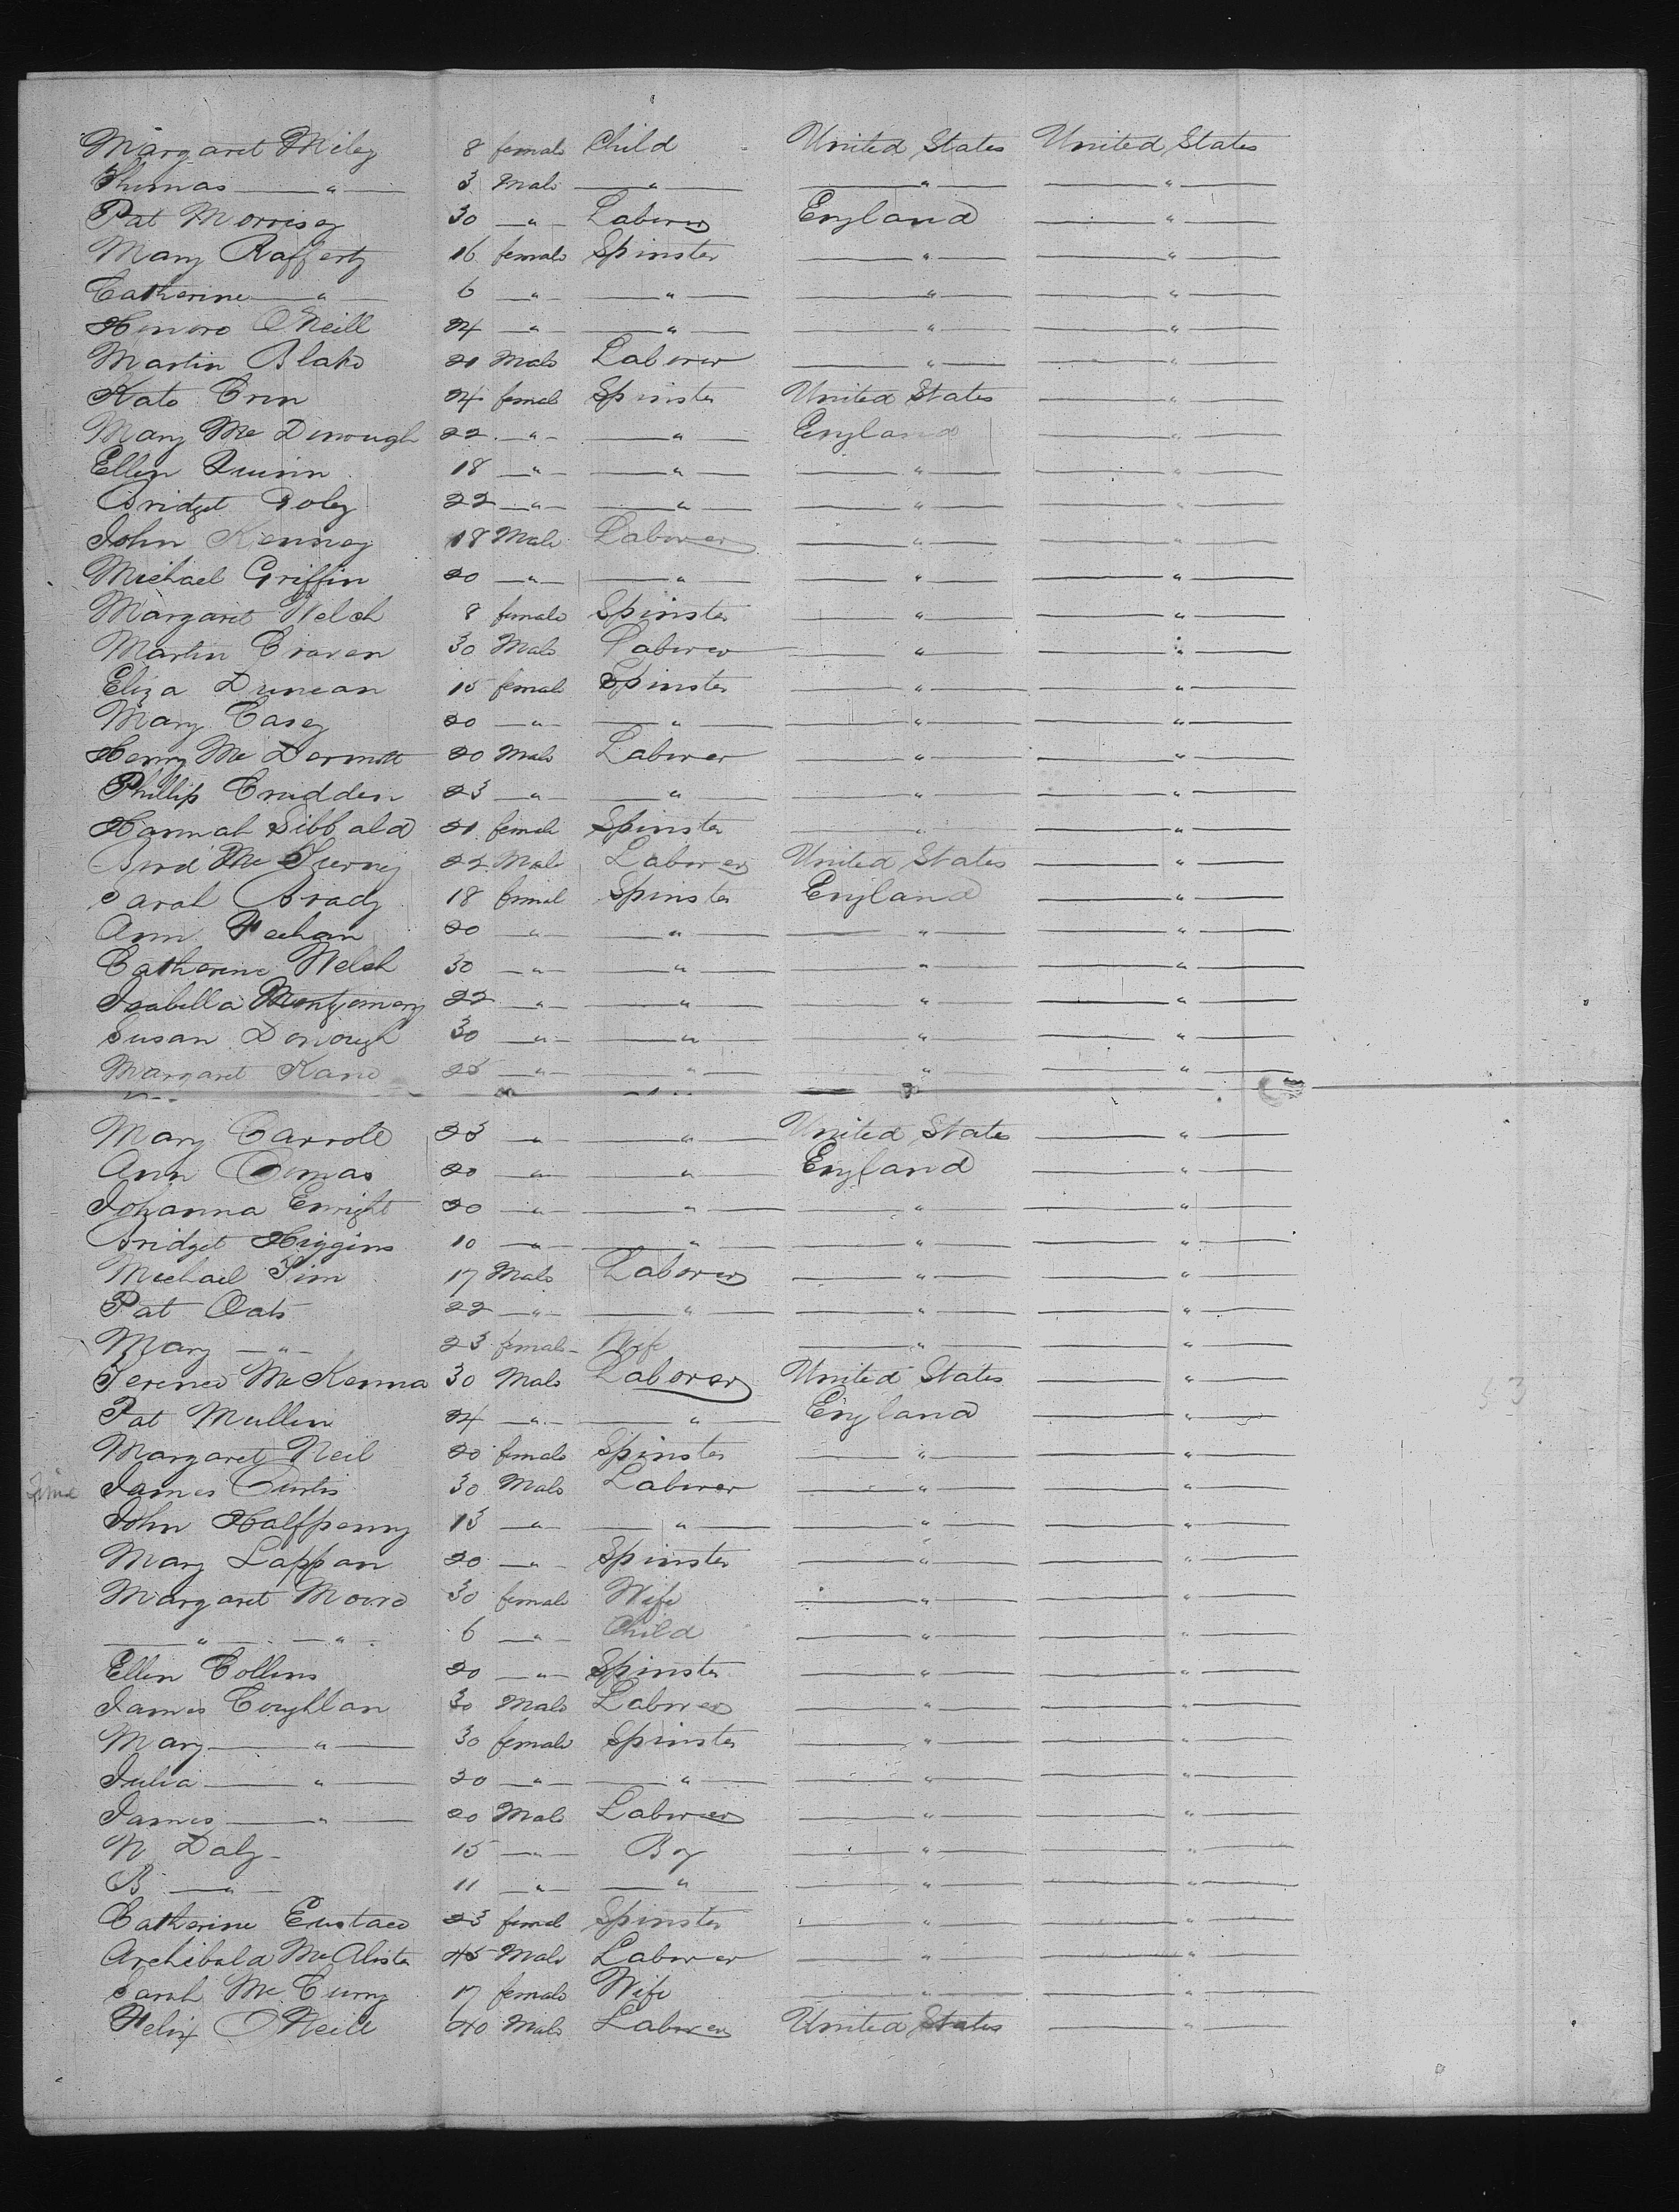 Margaret Miley 8 female Child United States United States
Thomas — " — 3 Male — " — — " — — " —
Pat Morrisey 30 — " — Laborer England — " —
Mary Rafferty 16 female Spinster — " — — " —
Catherine — " — 6 — " — — " — — " — — " —
Honora O'Neill 24 — " — — " — — " — — " —
Martin Blake 21 Male Laborer — " — — " —
Kate Cren 24 femal Spinster United States — " —
Mary Mc Donough 22 — " — — " — England — " —
Ellen Quinn 18 — " — — " — — " — — " —
Bridget Foley 22 — " — — " — — " — — " —
John Kenney 18 Male Laborer — " — — " —
Michael Griffin 20 — " — — " — — " — — " —
Margaret Welsh 8 female Spinster — " — — " —
Martin Craven 30 Male Laborer — " — — " —
Eliza Duncan 15 female Spinster — " — — " —
Mary Casey 20 — " — — " — — " — — " —
Henry Mc Dermott 20 Male Laborer — " — — " —
Phillip Crudden 23 — " — — " — — " — — " —
Hannah Sibbald 21 female Spinster — " — — " —
Mc 22 Male Laborer United States — " —
Sarah Brady 18 femal Spinster England — " —
Ann Feehan 20 — " — — " — — " — — " —
Catherine Welsh 30 — " — — " — — " — — " —
Isabella Montgomery 22 — " — — " — — " — — " —
Susan Donough 30 — " — — " — — " — — " —
Margaret Kane 25 — " — — " — — " — — " —
Mary Carroll 23 — " — — " — United States — " —
Ann Comas 20 — " — — " — England — " —
Johanna Enright 20 — " — — " — — " — — " —
Bridget Higgins 10 — " — — " — — " — — " —
Michael Finn 17 Male Laborer — " — — " —
Pat Oats 22 — " — — " — — " — — " —
Mary — " — 23 female Wife — " — — " —
Terence McKenna 30 Male Laborer United States — " —
Pat Mullen 24 — " — — " — England — " —
Margaret Neil 20 female Spinster — " — — " —
James Curtis 30 Male Laborer — " — — " —
John Halfpenny 13 — " — — " — — " — — " —
Mary Lappan 20 — " — Spinster — " — — " —
Margaret 30 female Wife — " — — " —
— " — — " — 6 — " — Child — " — — " —
Ellen Collins 20 — " — Spinster — " — — " —
James Coughlan 30 Male Laborer — " — — " —
Mary — " — 30 female Spinster — " — — " —
Julia — " — 20 — " — — " — — " — — " —
James — " — 20 Male Laborer — " — — " —
N Daly 15 — " — Boy — " — — " —
B — " — 11 — " — — " — — " — — " —
Catherine Eustace 23 femal Spinster — " — — " —
Archibald McAlister 45 Male Laborer — " — — " —
Sarah Mc Curry 17 female Wife — " — — " —
Felix O'Neill 40 Male Laborer United States — " —
53